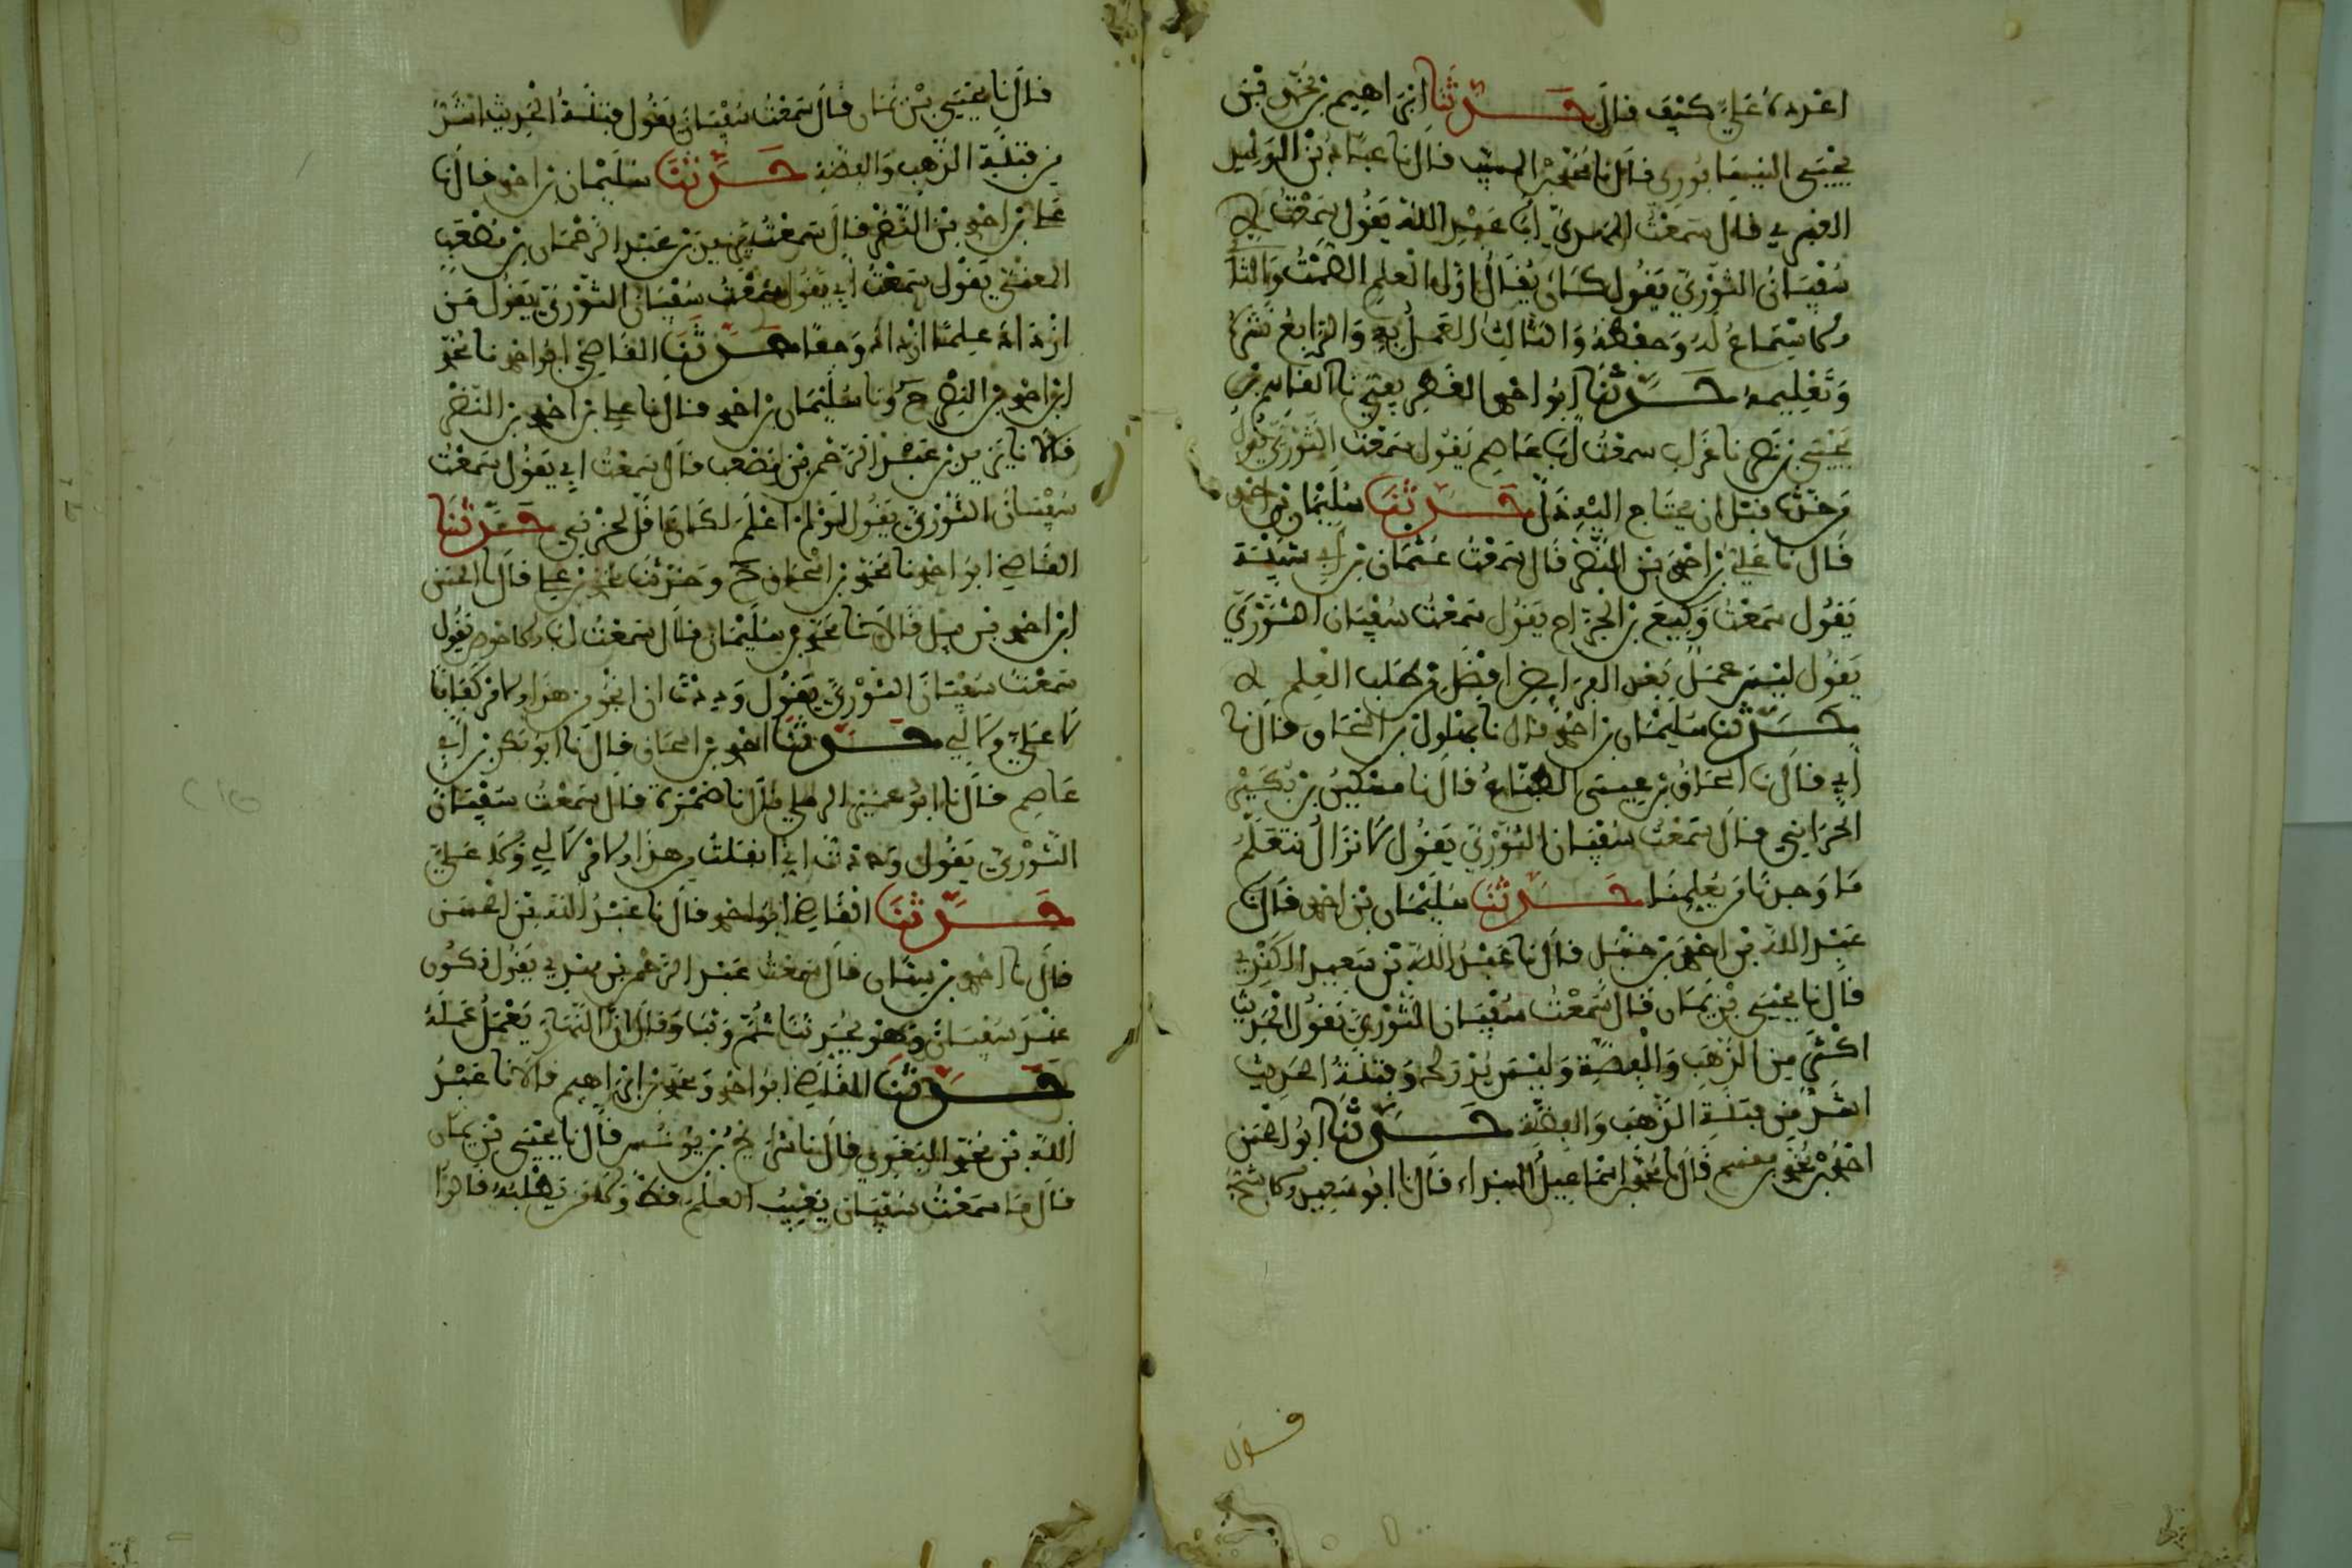 اعرده على كيف قال حدثنا ابراهيم بن محمد بن
يحيى النيسابوري قال نا محمد بن المسيب قال نا عباد بن الوليد
الغبري قال سمعت ابا عبد الله يقول سمعت
سفيان الثوري يقول كان يقال اول العلم الصمت والثا
الاستماع له وحفظه والثالث العمل به والرابع نشره
وتعليمه حدثنا ابو احمد الغطريفي نا القاسم بن
يحيى بن نصر نا سمعت ابا عاصم يقول سمعت الثوري يقول
من حدث قبل ان يحتاج اليه ذل حدثنا سليمان بن احمد
قال نا علي بن احمد بن النضر قال سمعت عثمان بن ابي شيبة
يقول سمعت وكيع بن الجراح يقول سمعت سفيان الثوري
يقول ليس عمل بعد الفرايض افضل من طلب العلم
حدثنا سليمان بن احمد قال نا بهلول بن اسحاق قال نا
ابي قال نا اسحاق بن عيسى الطباع قال نا مسكين بن بكير
الحراني قال سمعت سفيان الثوري يقول لا نزال نتعلم
ما وجدنا من يعلمنا حدثنا سليمان بن احمد قال نا
عبد الله بن احمد بن حنبل قال نا عبد الله بن سعيد الكندي
قال نا يحيى بن يمان قال سمعت سفيان الثوري يقول الحديث
اكثر من الذهب والفضة وليس يدرك وفتنة الحديث
اشد من فتنة الذهب والفضة حدثنا ابو الحسن
احمد بن محمد بن مقسم قال نا محمد بن اسماعيل البندار قال نا ابو سعيد الاشج
قال
قال نا يحيى بن يمان قال سمعت سفيان يقول فتنة الحديث اشد
من فتنة الذهب والفضة حدثنا سليمان بن احمد قال نا
علي بن احمد بن النضر قال سمعت يزيد بن عبد الرحمان بن مصعب
المعني يقول سمعت ابي يقول سمعت سفيان الثوري يقول من
ازداد علما ازداد وجعا حدثنا القاضي ابو احمد نا محمد
ابن احمد بن النضر ح ونا سليمان بن احمد قال نا علي بن احمد بن النضر
قالا نا يزيد بن عبد الرحمن بن مصعب قال سمعت ابي يقول سمعت
سفيان الثوري يقول لو لم اعلم لكان اقل لحزني حدثنا
القاضي ابو احمد نا محمد بن اسحاق ح وحدثنا محمد بن علي قال نا الحسن
ابن احمد بن قالا نا محمد بن سليمان قال سمعت ابا الاحوص يقول
سمعت سفيان الثوري يقول وددت ان انجو من هذا الامر كفافا
لا علي ولا لي حدثنا احمد بن اسحاق قال نا ابو بكر بن ابي
عاصم قال نا ابو عمير الرملي قال نا ضمرة قال سمعت سفيان
الثوري يقول وددت اني انفلت من هذا الامر لا لي ولا علي
حدثنا القاضي ابو احمد قال نا عبد الله بن الحسن
قال نا احمد بن سنان قال سمعت عبد الرحمن بن مهدي يقول نكون
عند سفيان وهو يحدثنا ثم وثبا وقال ان النهار يعمل عمله
حدثنا القاضي ابو احمد ومحمد بن ابراهيم قالا نا عبد
الله بن محمد البغوي قال نا شريح بن يونس قال نا يحيى بن يمان
قال ما سمعت سفيان يعيب العلم قط ولا من يطلبه قالوا